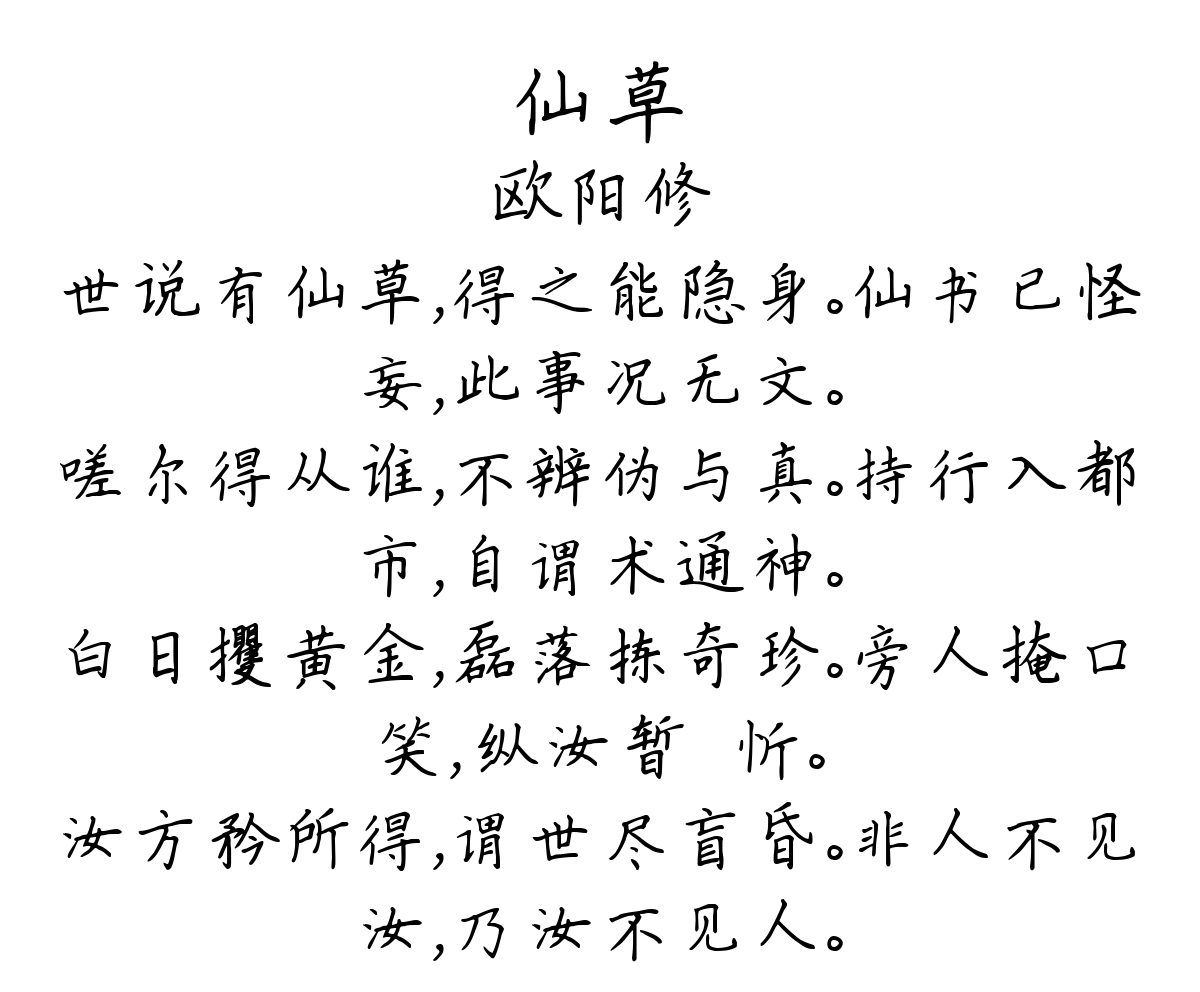 仙草
欧阳修
世说有仙草,得之能隐身。仙书已怪
妄,此事况无文。
嗟尔得从谁,不辨伪与真。持行入都
市,自谓术通神。
白日攫黄金,磊落拣奇珍。旁人掩口
笑,纵汝暂 忻。
汝方矜所得,谓世尽盲昏。非人不见
汝,乃汝不见人。